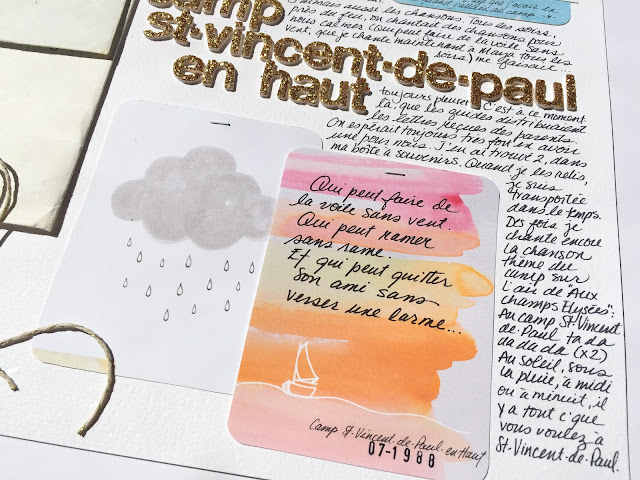 que j'avais en
J'aimais aussi les chansons. Tous les soirs,
près du feu, on chantait des chansons pour
nous calmer (Qui peut faire de la voile sans
vent, que je chante maintenant à Maya tous les
soirs) me faisait...
camp
st-vincent-de-paul
en haut
toujours pleurer. C'est à ce moment
là que les guides distribuaient
les lettres reçues des parents.
On espérait toujours très fort en avoir
une pour nous. J'en ai trouvé 2, dans
ma boîte à souvenirs. Quand je les relis,
je suis
transportée
dans le temps.
Des fois je
chante encore
la chanson
thème du
camp sur
l'air de "Aux
champs Elysées":
Au camp St-Vincent
de-Paul ta da
da da da (x2)
Au soleil, sous
la pluie, à midi
ou à minuit, il
y a tout c'que
vous voulez à
St-Vincent-de-Paul.
Qui peut faire de
la voile sans vent.
Qui peut ramer
sans rame.
Et qui peut quitter
son ami sans
verser une larme...
Camp St-Vincent-de-Paul-en-Haut
07-1988